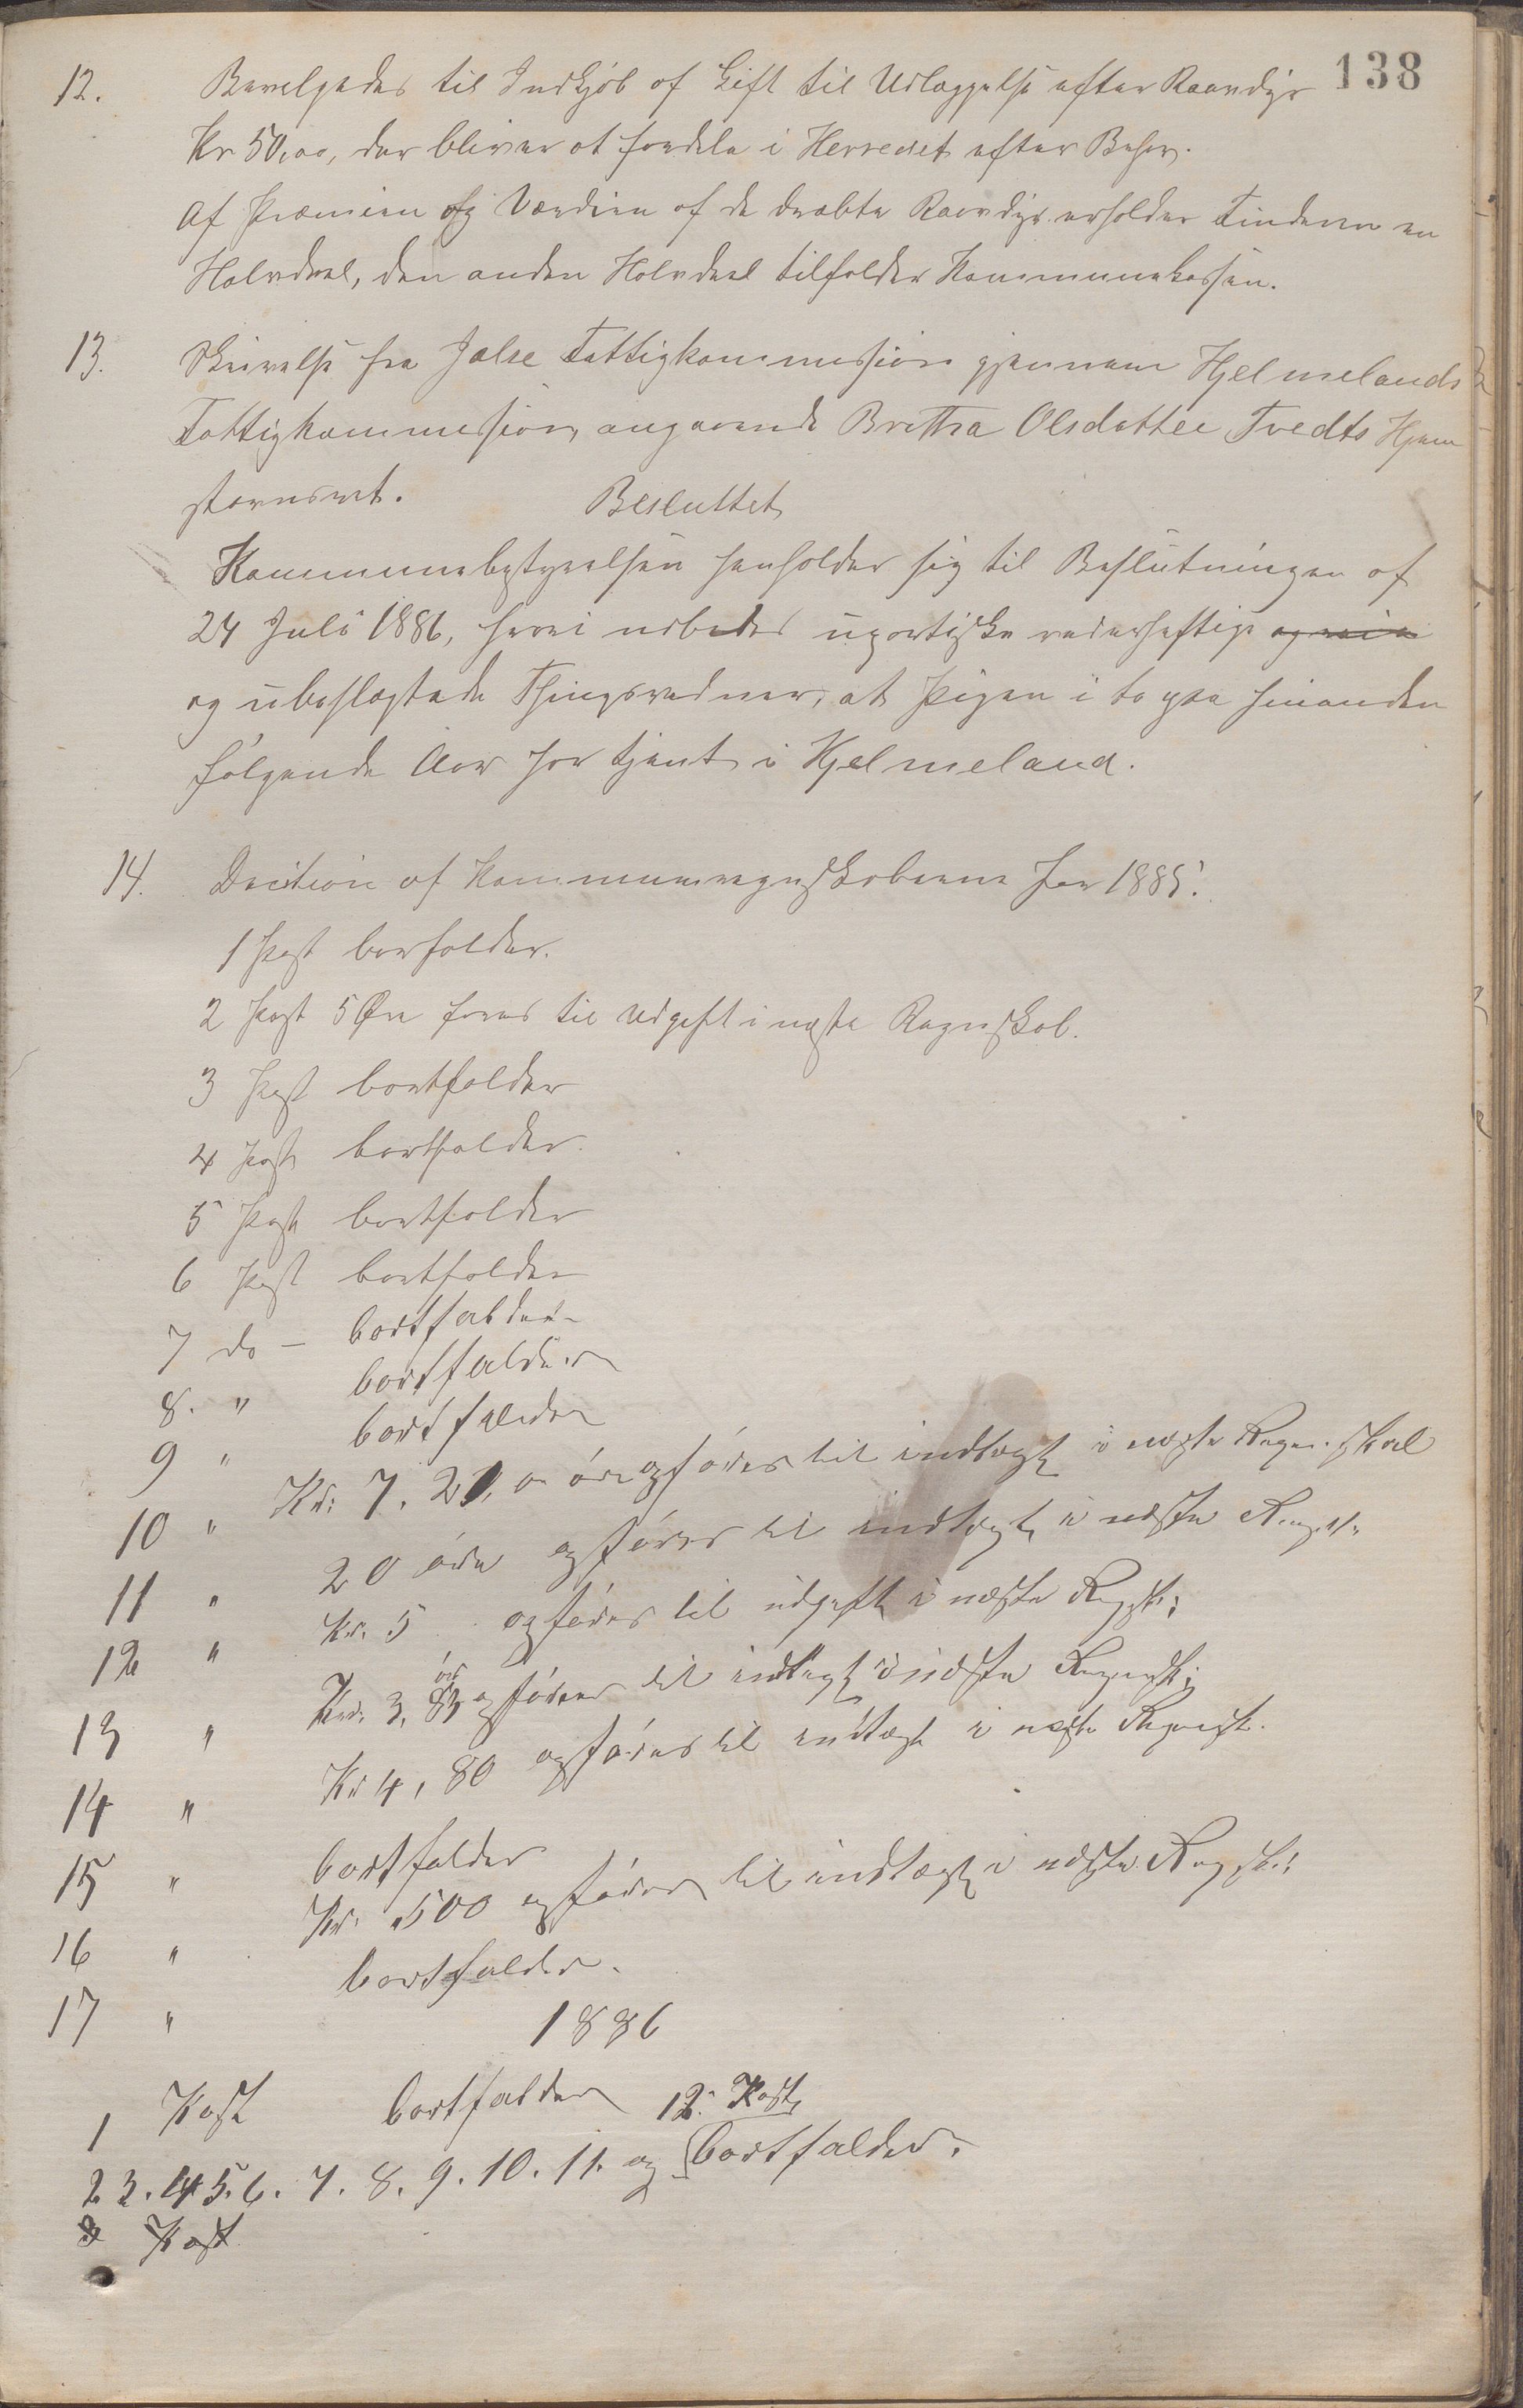 138
12. Bevelgedes til Indkjöb af Gift til Udlæggelse efter Raavdyr
Kr 50,00, der bliver at fordele i Herredet efter Behov.
Af Præmien og Værdien af de dræbte Raavdyr erholder Finderen en
Halvdeel, den anden Halvdeel tilfalder Kommunekassen.
13. Skrivelse fra Jælse Fattigkommission gjennem Hjelmelands
Fattigkommission angaaende Brettra Olsdatter Tvedts Hjem
stavnsret. Besluttet
Kommunebestyrelsen henholder sig til Beslutningen af
24 Juli 1886, hvori udbedes upartiske vederhæftige
og ubeslægtede Thingsvidner, at Pigen i to paa hinanden
fölgende Aar har tjent i Hjelmeland.
14. Decition af Kommuneregnskaberne for 1885.
1 Post borfalder.
2 Post 5 Öre föres til Udgift i næste Regnskab.
3 Post bortfalder
4 Post bortfalder.
5 Post bortfalder
6 Post bortfalder
7 do - bortfalder
8. " bortfalder
9 " bortfalder
10 " Kr. 7. 20, öre opföres til indtægt i næste Regnskab
11 " 20 öre opföres til indtægt i næste Regnsk.
12 " Kr. 5 opföres til udgift i næste Regsk:
13 " Kr. 3, 83 öre opföres til indtægt i næste Regnsk:
14 " Kr 4, 80 opföres til indtægt i næste Regnsk.
15 " bortfalder
16 " Kr. 500 opföres til indtægt i næste Regsk:
17 " bortfalder.
1886
1 Post bortfalder
2 3. 4 5. 6. 7. 8. 9. 10. 11. og 12. Post bortfalder.
Post